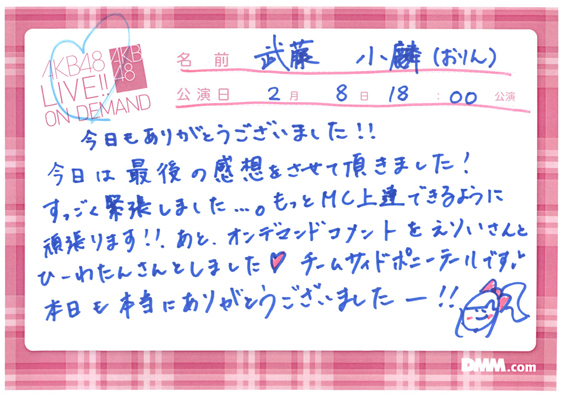 AKB48
LIVE!!
ON DEMAND
AKB
48
名前 武藤 小麟(おりん)
公演日 2月 8日 18:00 公演
今日もありがとうございました!!
今日は最後の感想をさせて頂きました!
すっごく緊張しました…。もっとMC上達できるように
頑張ります!!あと、オンデマンドコメントをえりいさんと
ひーわたんさんとしました♥ チームサイドポニーテールです♪
本日も本当にありがとうございましたー!!
DMM.com